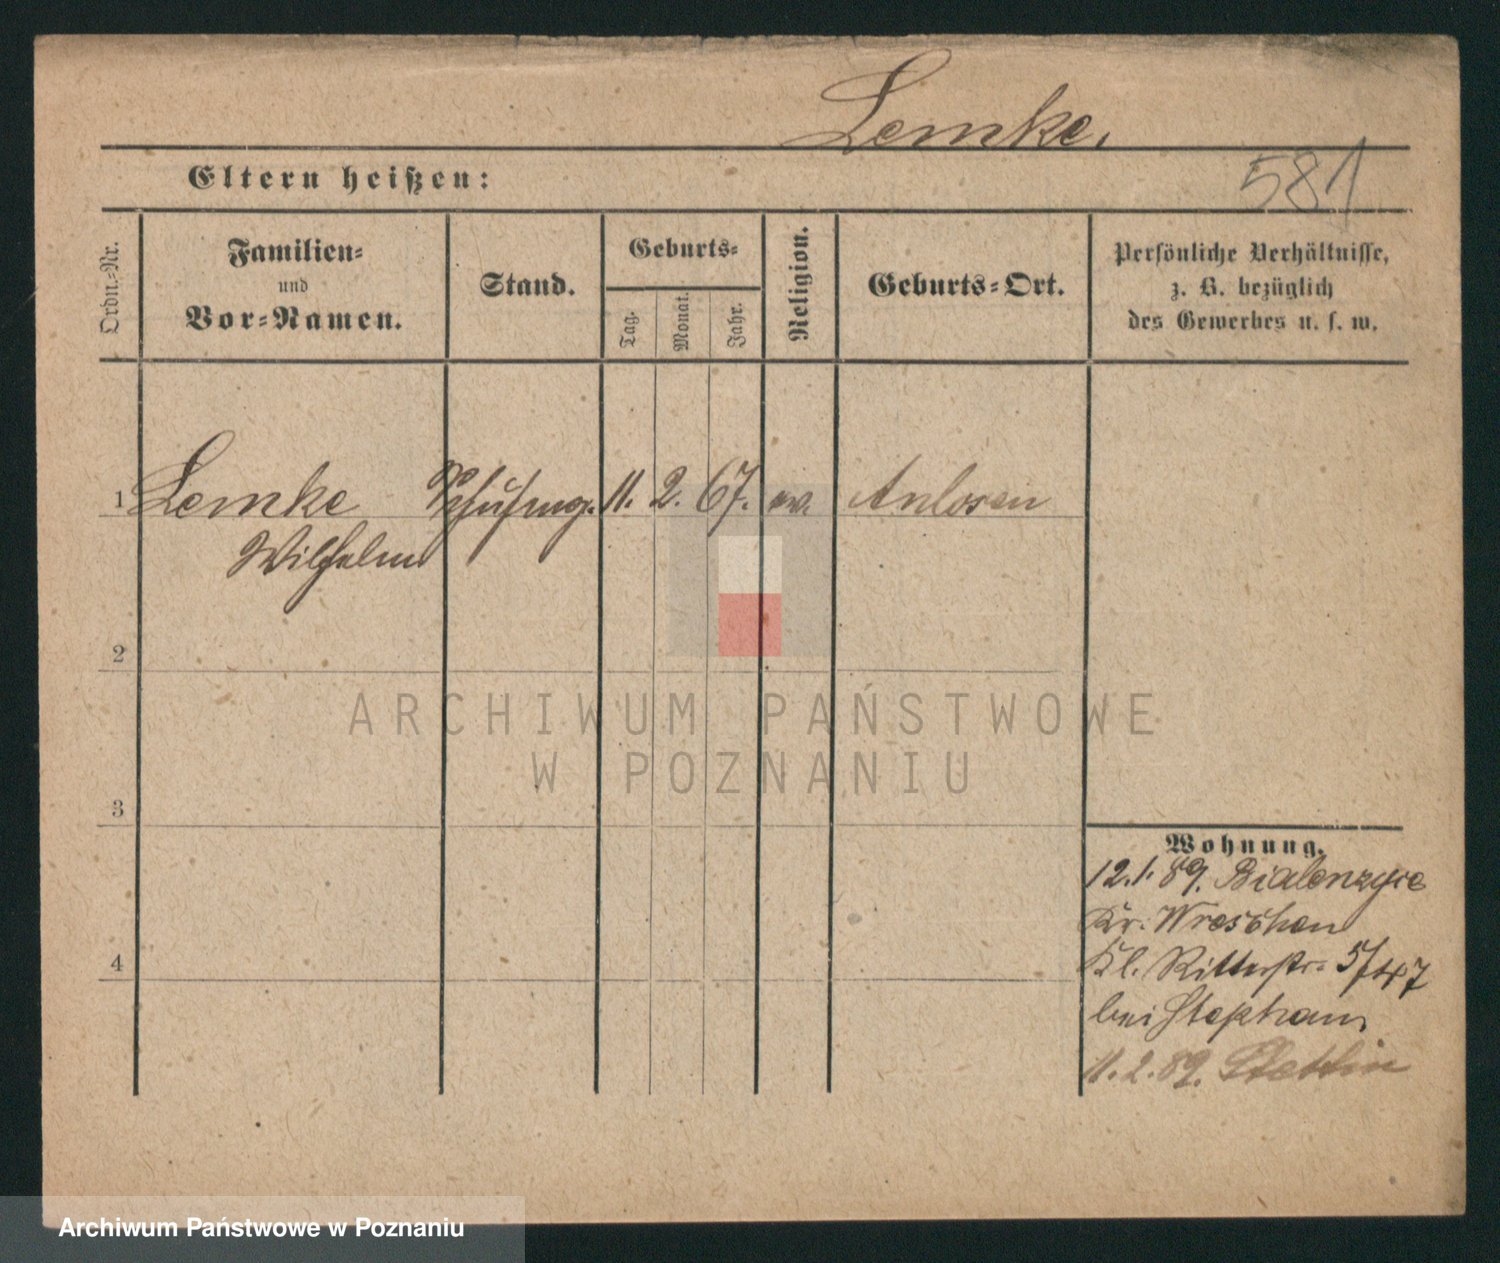 Lemke.
Eltern heißen:
581
Ordn.-Nr.
Familien-
und
Vor-Namen.
Stand.
Geburts-
Tag.
Monat.
Jahr.
Religion.
Geburts-Ort.
Persönliche Verhältnisse,
z. B. bezüglich
des Gewerbes u. s. w.
1 Lemke 11. 2. 67. ev.
Wilhelm
2
3
4
Wohnung.
12.1.89. Bialenzyce
Kr. Wreschen
Kl. Ritterstr. 5/
bei Stephan
11.2.89. Stettin
ARCHIWUM PAŃSTWOWE
W POZNANIU
Archiwum Państwowe w Poznaniu